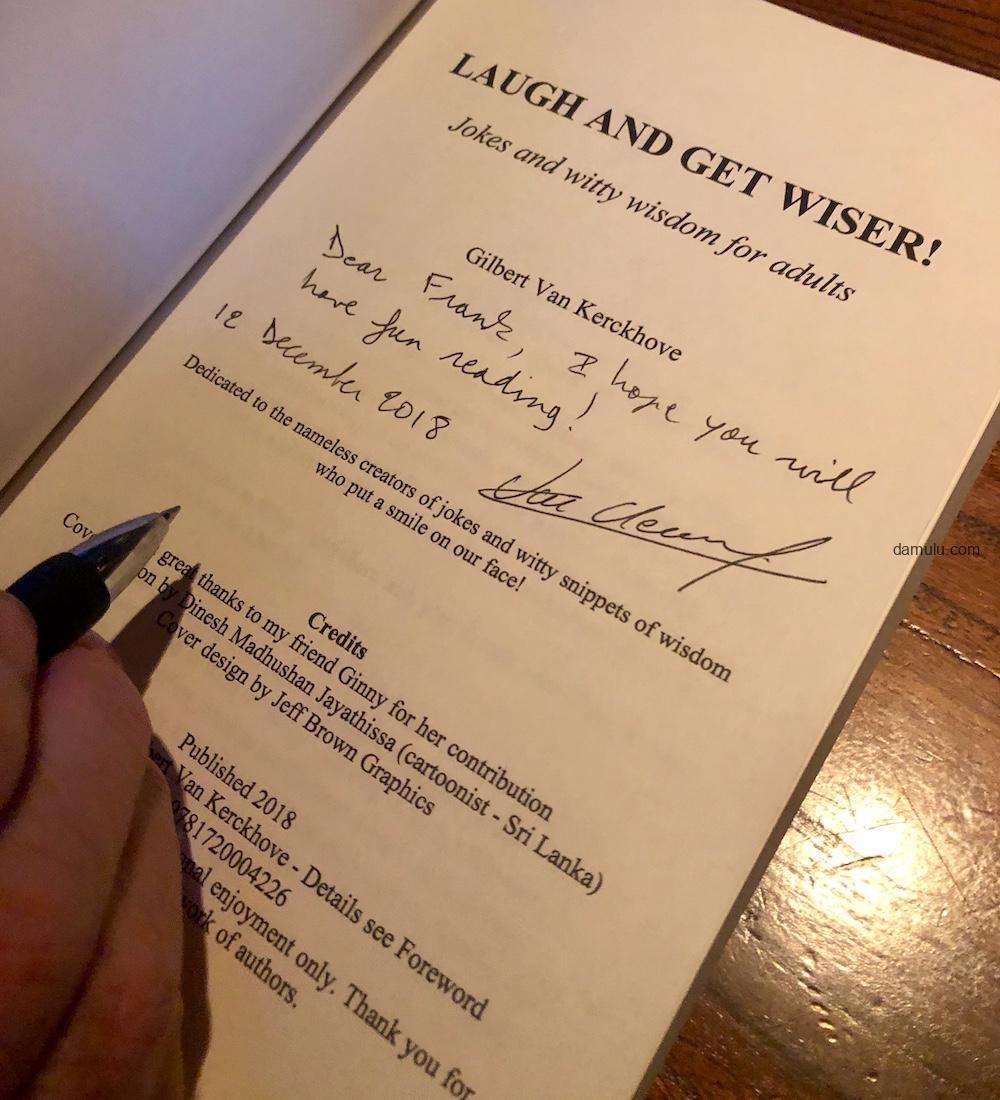 LAUGH AND GET WISER!
Jokes and witty wisdom for adults
Gilbert Van Kerckhove
Dear Frank, I hope you will
have fun reading!
12 December 2018
Dedicated to the nameless creators of jokes and witty snippets of wisdom
who put a smile on our face!
Credits
great thanks to my friend Ginny for her contribution
by Dinesh Madhushan Jayathissa (cartoonist - Sri Lanka)
Cover design by Jeff Brown Graphics
Published 2018
Van Kerckhove - Details see Foreword
9781720004226
enjoyment only. Thank you for
work of authors.
damulu.com